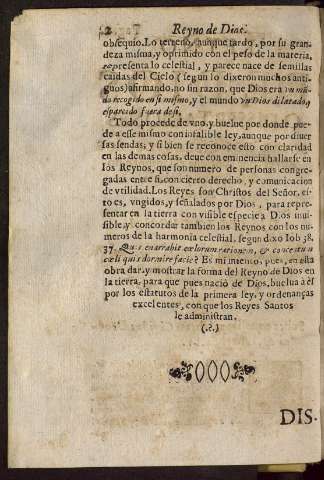 2 Reyno de Dios:
obsequio. Lo terreno, aunque tardo, por su gran-
deza misma, y oprimido con el peso de la materia,
representa lo celestial, y parece nace de semillas
caidas del Cielo (segun lo dixeron muchos anti-
guos) afirmando, no sin razon, que Dios era vn mũ-
do recogido en si mismo, y el mundo vn Dios dilatado, y
esparcido fuera de si.
Todo procede de vno, y buelue por donde pue-
de a esse mismo con infalible ley, aunque por diuer
sas sendas, y si bien se reconoce esto con claridad
en las demas cosas, deue con eminencia hallarse en
los Reynos, que son numero de personas congre-
gadas entre si con cierto derecho, y comunicacion
de vtilidad. Los Reyes son Christos del Señor, es-
to es, vngidos, y señalados por Dios, para repre-
sentar en la tierra con visible especie a Dios inui-
sible, y concordar tambien los Reynos con los nu-
meros de la harmonia celestial, segun dixo Iob 38.
37. Quis enarrabit cœlorum rationem, & concentum
cœli quis dormire faciet? Es mi intento, pues, en esta
obra dar, y mostrar la forma del Reyno de Dios en
la tierra, para que pues nació de Dios, buelua à el
por los estatutos de la primera ley, y ordenanças
excelentes, con que los Reyes Santos
le administran.
(.?.)
DIS-